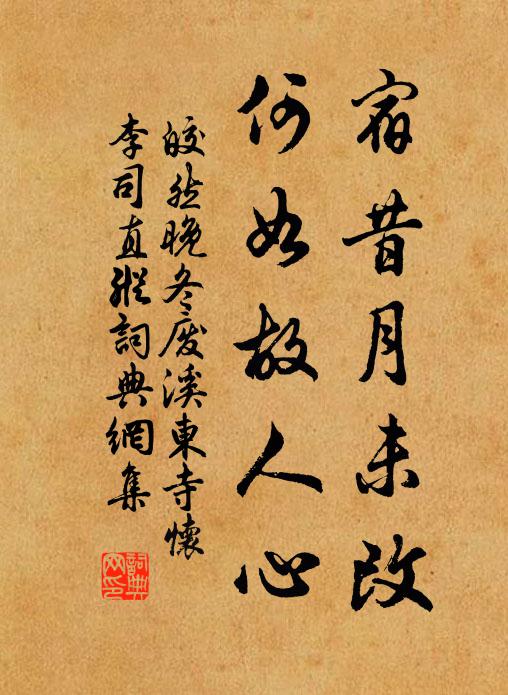 宿昔月未改
何如故人心
皎然晚冬废溪東寺懷
李司直縱詞典網集
詞典
网印